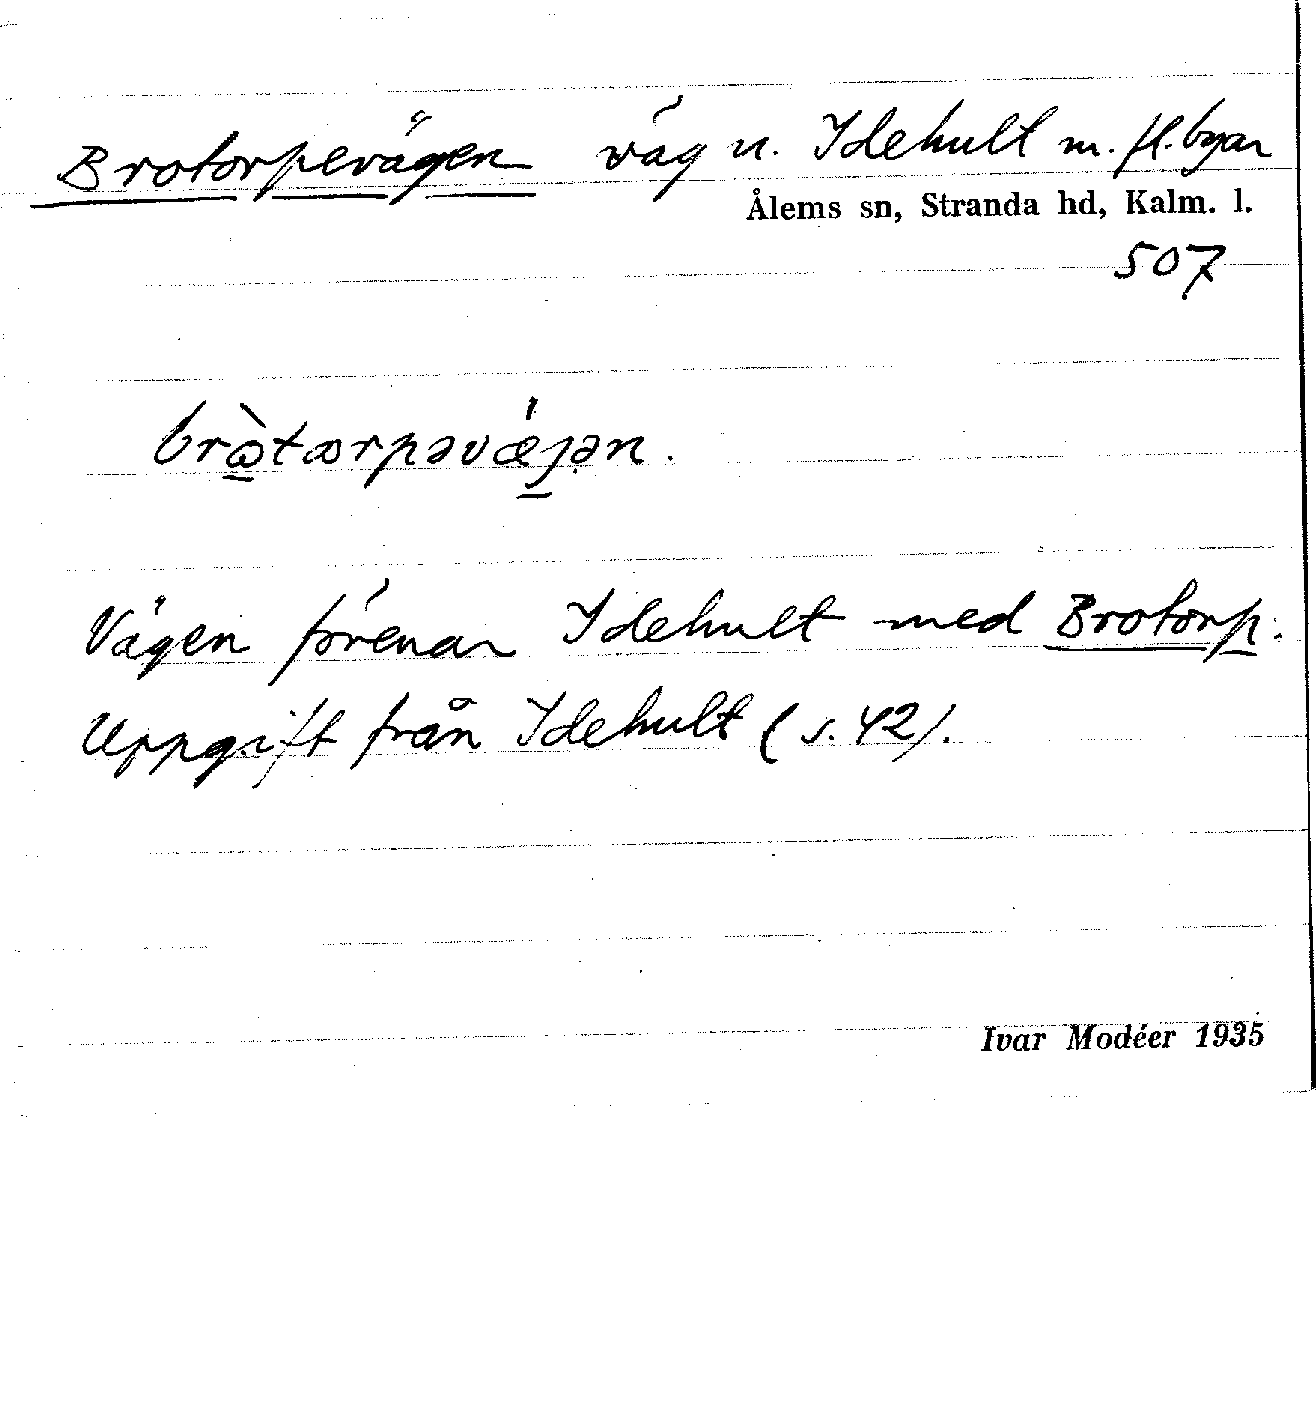 Brotorpevägen väg u. Idehult m. fl. byar
Ålems sn, Stranda hd, Kalm. l.
507
Vägen förenar Idehult med Brotorp.
Uppgift från Idehult (s. 42).
Ivar Modéer 1935